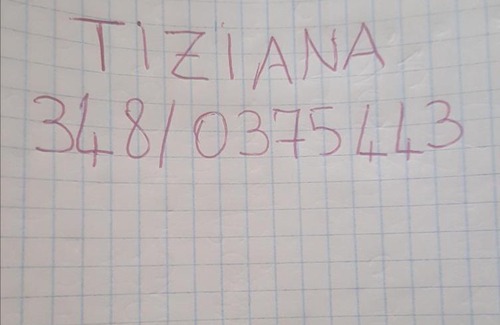 TIZIANA
348/0375443